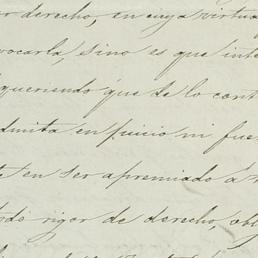 r derecho, en cuya virtu
vocarla, sino es que inte
queriendo que de lo cont
dmita en juicio ni fue
en ser apremiado á
rigor de derecho,